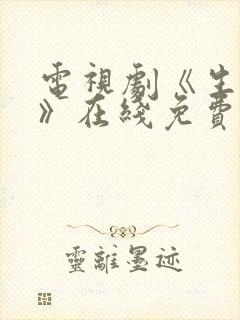 電視劇《生
》在綫免費
靈離墨迹